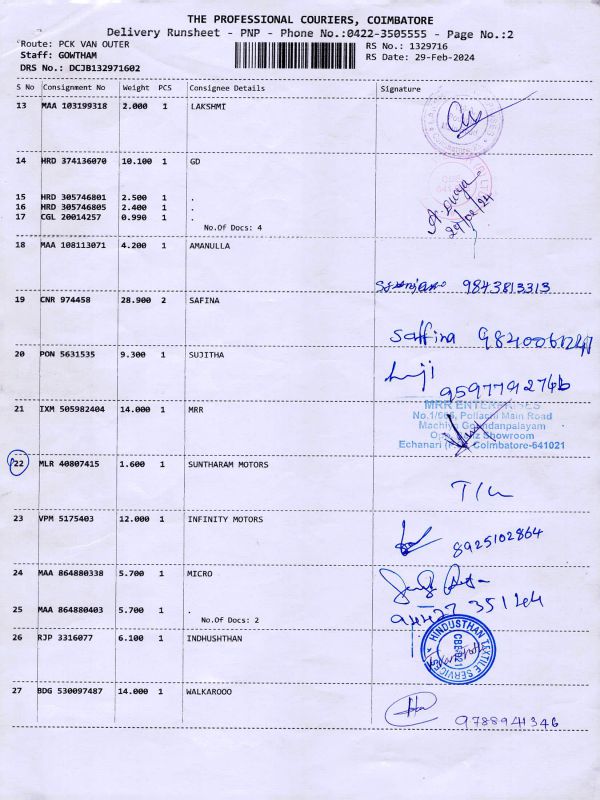 THE PROFESSIONAL COURIERS, COIMBATORE
Delivery Runsheet - PNP - Phone No.:0422-3505555 - Page No.:2
Route: PCK VAN OUTER
RS No.: 1329716
Staff: GOWTHAM
RS Date: 29-Feb-2024
DRS No.: DCJB132971602
S No Consignment No Weight PCS Consignee Details Signature
13 MAA 103199318 2.000 1 LAKSHMI
14 HRD 374136070 10.100 1 GD
15 HRD 305746801 2.500 1 .
16 HRD 305746805 2.400 1 .
17 CGL 20014257 0.990 1 .
29/02/24
No.Of Docs: 4
18 MAA 108113071 4.200 1 AMANULLA
9843813313
19 CNR 974458 28.900 2 SAFINA
Saffina
20 PON 5631535 9.300 1 SUJITHA
Suji
21 IXM 505982404 14.000 1 MRR
MRR ENTERPRISES
Pollachi Main Road
Showroom
Coimbatore-641021
22 MLR 40807415 1.600 1 SUNTHARAM MOTORS
23 VPM 5175403 12.000 1 INFINITY MOTORS
8925102864
24 MAA 864880338 5.700 1 MICRO
25 MAA 864880403 5.700 1 .
No.Of Docs: 2
26 RJP 3316077 6.100 1 INDHUSHTHAN
HINDUSTHAN TEXTILE SERVICES
27 BDG 530097487 14.000 1 WALKAROOO
9788941346